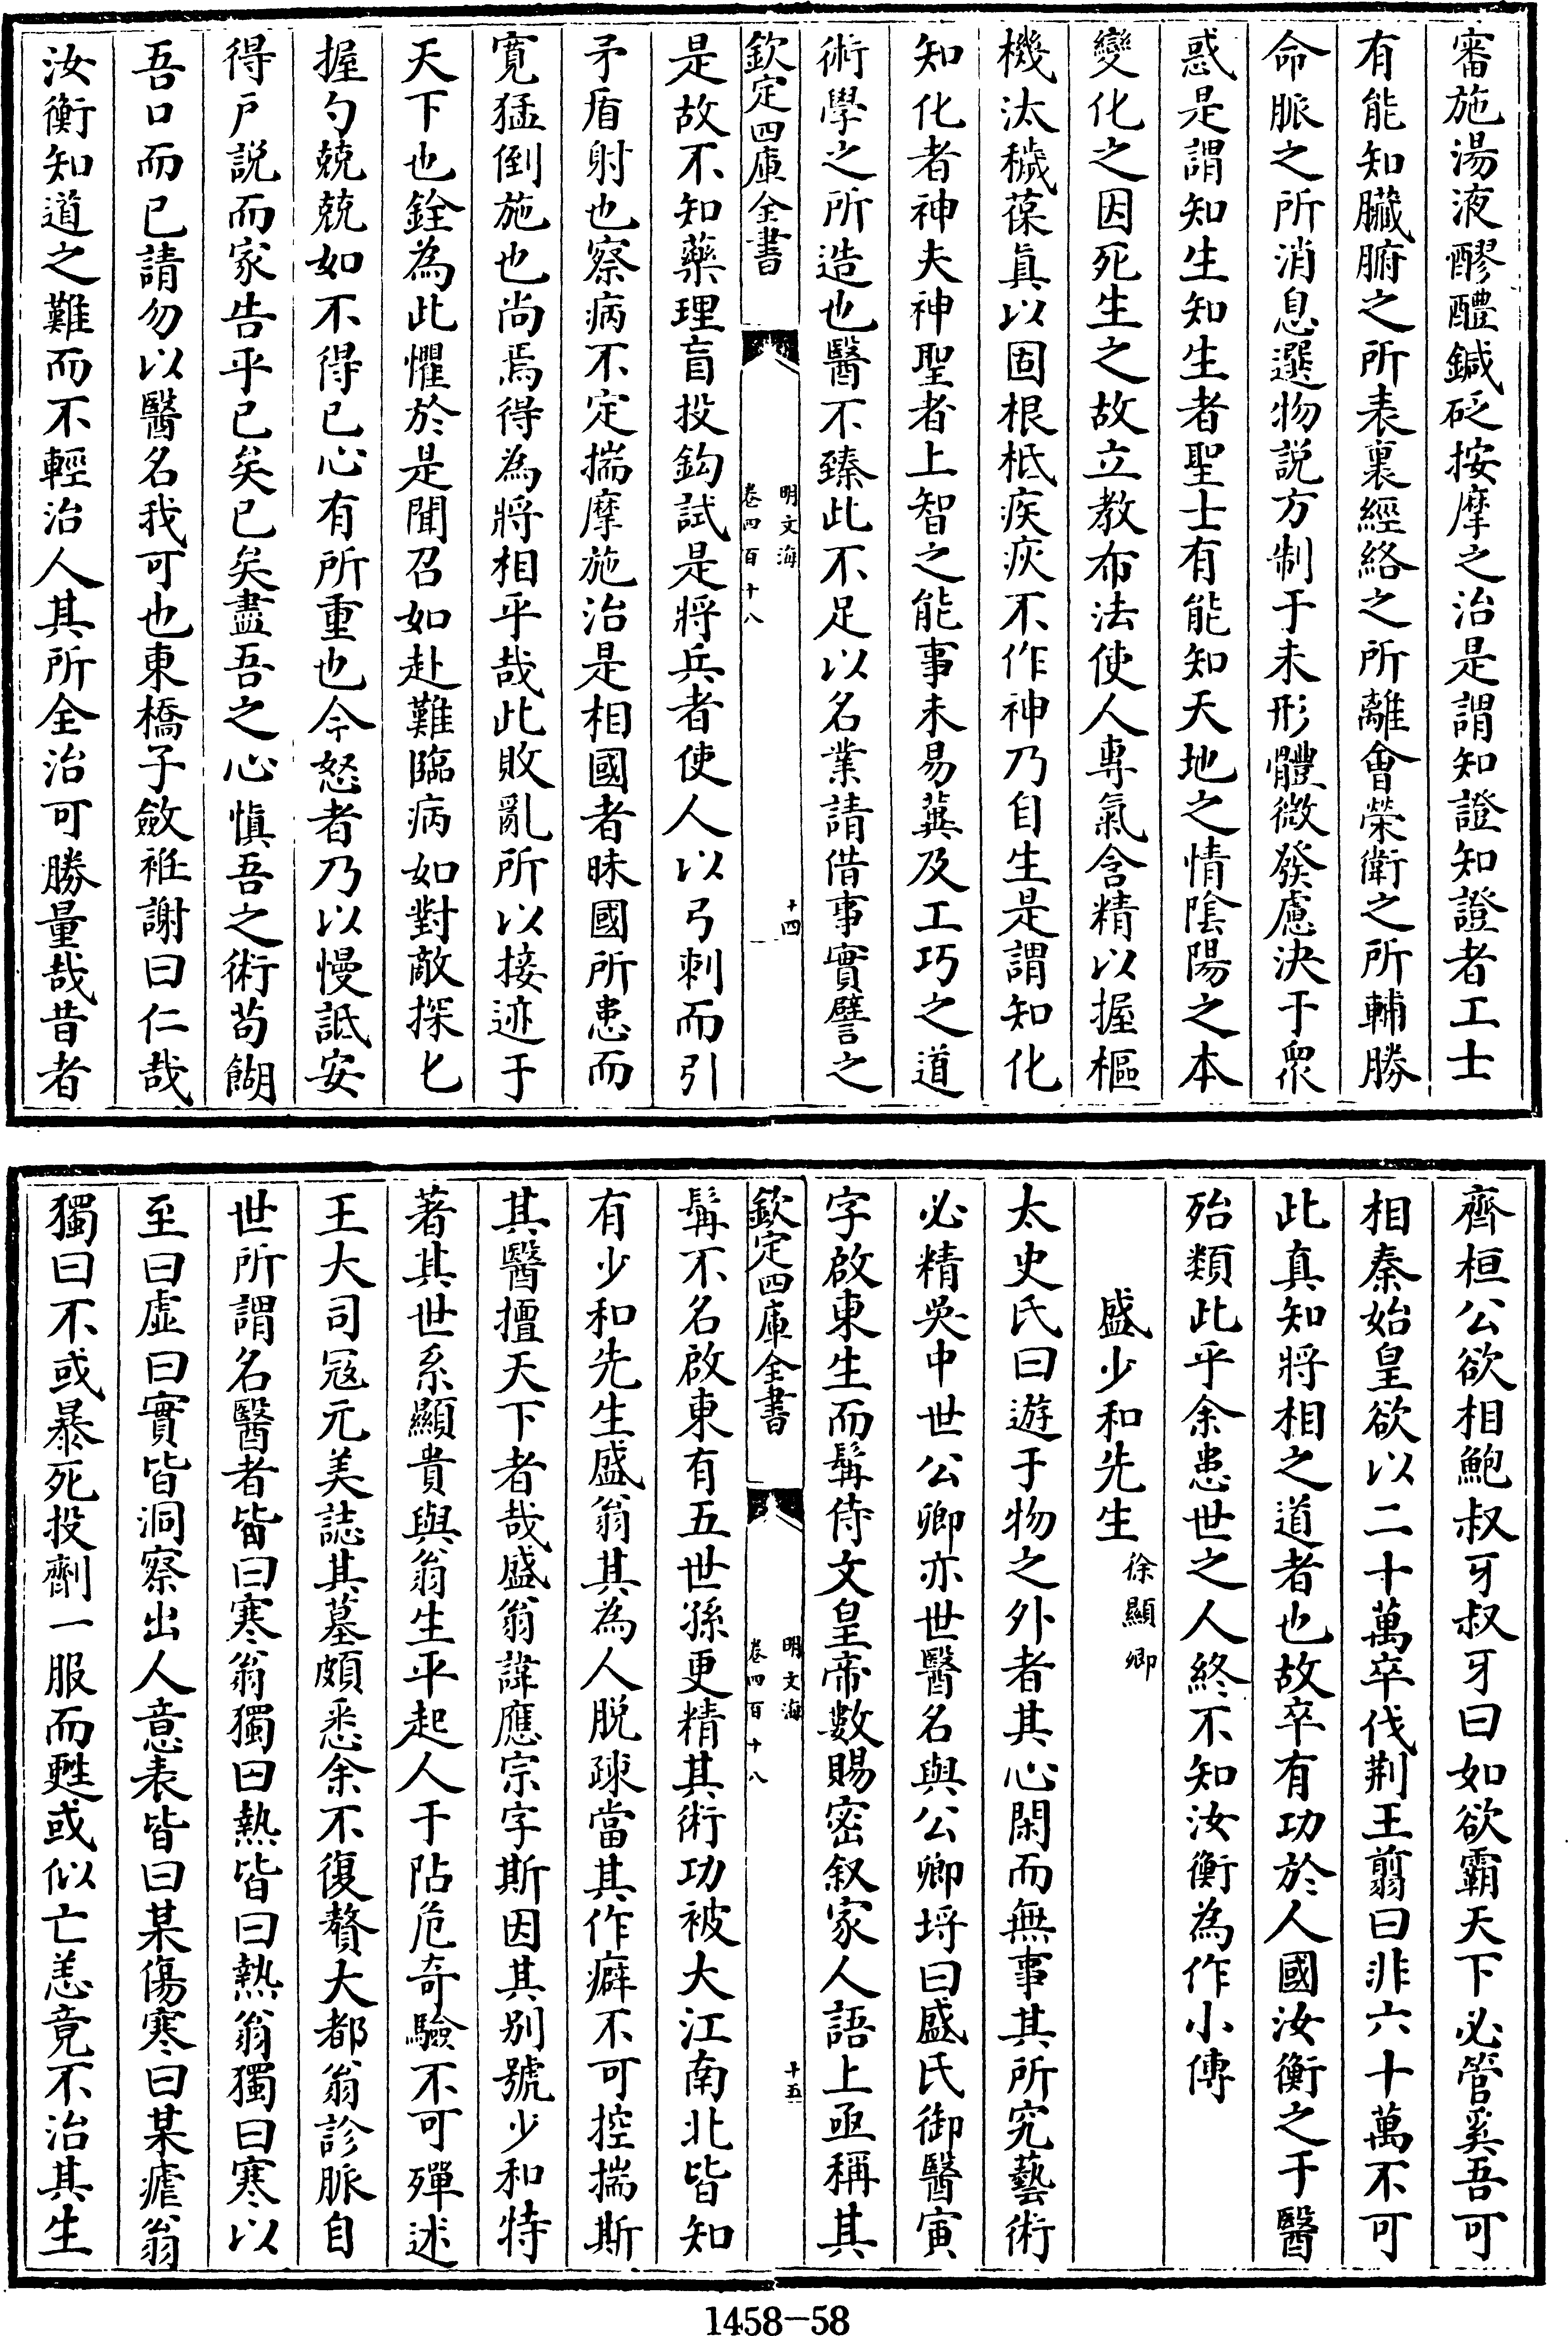 審施湯液醪醴鍼砭按摩之治是謂知證知證者工士
有能知臟腑之所表裏經絡之所離會榮衛之所輔勝
命脈之所消息選物説方制于未形體微發慮決于衆
惑是謂知生知生者聖士有能知天地之情陰陽之本
變化之因死生之故立教布法使人專氣含精以握樞
機汰穢葆眞以固根柢疾疢不作神乃自生是謂知化
知化者神夫神聖者上智之能事未易冀及工巧之道
術學之所造也醫不臻此不足以名業請借事實譬之
欽定四庫全書
明文海
卷四百十八
十四
是故不知藥理盲投鈎試是將兵者使人以弓刺而引
矛盾射也察病不定揣摩施治是相國者昧國所患而
寛猛倒施也尚焉得為將相乎哉此敗亂所以接迹于
天下也銓為此懼於是聞召如赴難臨病如對敵探匕
握勺兢兢如不得已心有所重也今怒者乃以慢詆安
得戸説而家告乎已矣已矣盡吾之心慎吾之術茍餬
吾口而已請勿以醫名我可也東橋子斂袵謝曰仁哉
汝衡知道之難而不輕治人其所全治可勝量哉昔者
齊桓公欲相鮑叔牙叔牙曰如欲霸天下必管奚吾可
相秦始皇欲以二十萬卒伐荆王翦曰非六十萬不可
此真知將相之道者也故卒有功於人國汝衡之于醫
殆類此乎余患世之人終不知汝衡為作小傳
盛少和先生 徐顯卿
太史氏曰遊于物之外者其心閑而無事其所究藝術
必精吳中世公卿亦世醫名與公卿埒曰盛氏御醫寅
字啟東生而髯侍文皇帝數賜密叙家人語上亟稱其
欽定四庫全書
明文海
卷四百十八
十五
髯不名啟東有五世孫更精其術功被大江南北皆知
有少和先生盛翁其為人脱疎當其作癖不可控揣斯
其醫擅天下者哉盛翁諱應宗字斯因其别號少和特
著其世系顯貴與翁生平起人于阽危奇驗不可殫述
王大司冦元美誌其墓頗悉余不復贅大都翁診脈自
世所謂名醫者皆曰寒翁獨曰熱皆曰熱翁獨曰寒以
至曰虚曰實皆洞察出人意表皆曰某傷寒曰某瘧翁
獨曰不或暴死投劑一服而甦或似亡恙竟不治其生
1458-58